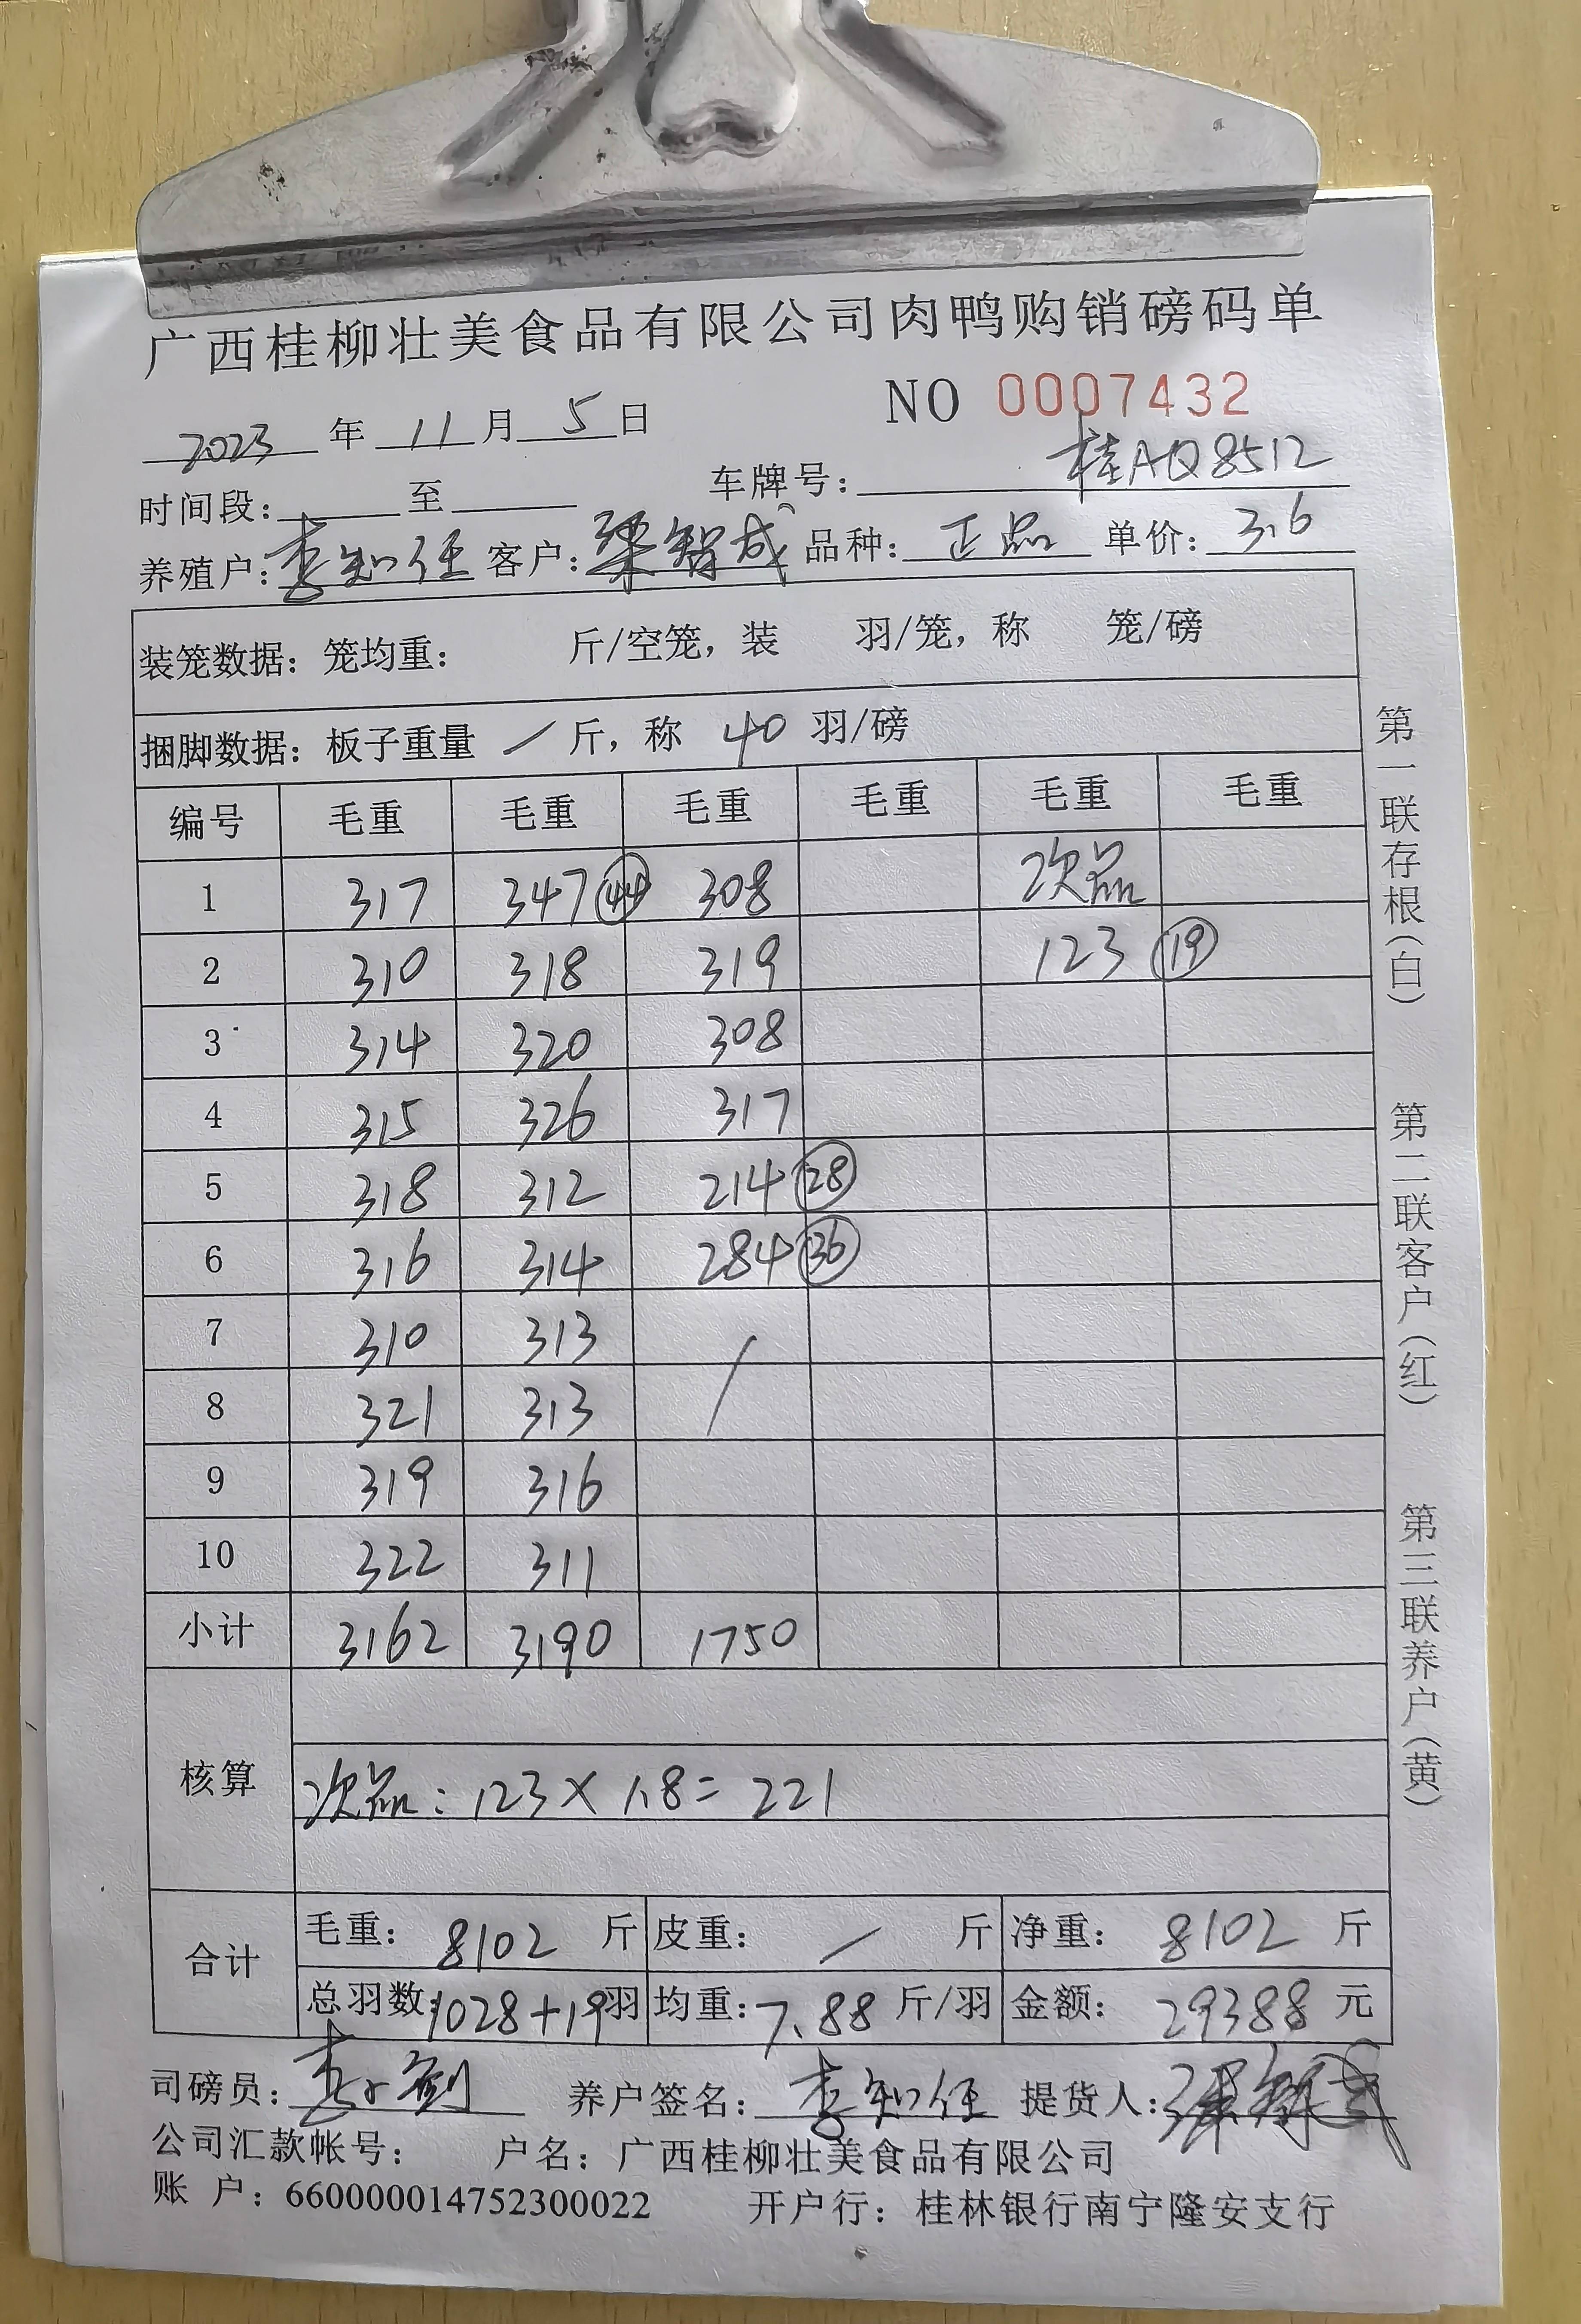 广西桂柳壮美食品有限公司肉鸭购销磅码单
NO 0007432
2023 年 11 月 5 日
时间段: 至 车牌号: 桂AQ8512
养殖户: 李知任 客户: 梁智成 品种: 正品 单价: 3.6
装笼数据: 笼均重: 斤/空笼, 装 羽/笼, 称 笼/磅
捆脚数据: 板子重量 / 斤, 称 40 羽/磅
编号 毛重 毛重 毛重 毛重 毛重 毛重
1 317 347 44 308 次品
2 310 318 319 123 19
3 314 320 308
4 315 326 317
5 318 312 214 28
6 316 314 284 36
7 310 313 /
8 321 313
9 319 316
10 322 311
小计 3162 3190 1750
核算
次品: 123×1.8=221
合计
毛重: 8102 斤 皮重: / 斤 净重: 8102 斤
总羽数: 1028+19 羽 均重: 7.88 斤/羽 金额: 29388 元
司磅员: 养户签名: 李知任 提货人:
公司汇款帐号: 户名: 广西桂柳壮美食品有限公司
账 户: 660000014752300022 开户行: 桂林银行南宁隆安支行
第一联存根(白)
第二联客户(红)
第三联养户(黄)